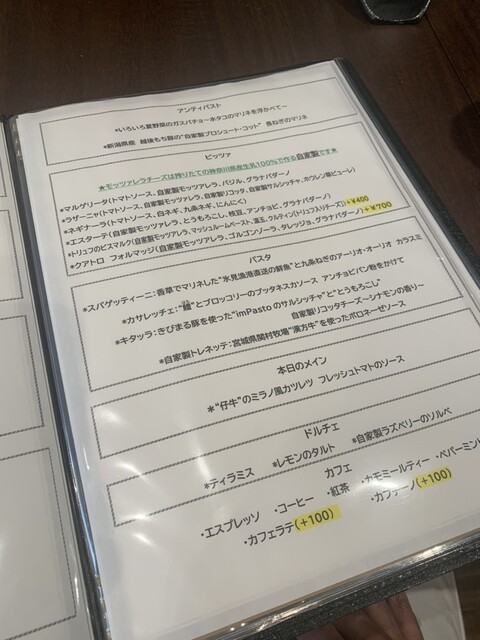 アンティパスト
*いろいろ夏野菜のガスパチョ~水タコのマリネを浮かべて~
*新潟県産 越後もち豚の“自家製プロシュート・コット” 長ねぎのマリネ
ピッツァ
★モッツァレラチーズは搾りたての神奈川県産生乳100%で作る自家製です★
*マルゲリータ(トマトソース、自家製モッツァレラ、バジル、グラナパダーノ)
*ラザーニャ(トマトソース、自家製モッツァレラ、自家製リコッタ、自家製サルシッチャ、ホウレン草ピューレ)
*ネギナーラ(トマトソース、白ネギ、九条ネギ、にんにく)
*エスターテ(自家製モッツァレラ、とうもろこし、枝豆、アンチョビ、グラナパダーノ)
*トリュフのビスマルク(自家製モッツァレラ、マッシュルームペースト、温玉、クルティン(トリュフ入りチーズ))+¥400
*クアトロ フォルマッジ(自家製モッツァレラ、ゴルゴンゾーラ、タレッジョ、グラナパダーノ)+¥700
パスタ
*スパゲッティーニ:香草でマリネした“氷見漁港直送の鮮魚”と九条ねぎのアーリオ・オーリオ カラスミ
*カサレッチェ:“鱧”とブロッコリーのプッタネスカソース アンチョビとパン粉をかけて
*キタッラ:きびまる豚を使った“imPastoのサルシッチャ”と“とうもろこし”
自家製リコッタチーズ~シナモンの香り~
*自家製トレネッテ:宮城県関村牧場“漢方牛”を使ったボロネーゼソース
本日のメイン
*“仔牛”のミラノ風カツレツ フレッシュトマトのソース
ドルチェ
*ティラミス *レモンのタルト *自家製ラズベリーのソルベ
カフェ
・エスプレッソ ・コーヒー ・紅茶 ・カモミールティー ・ペパーミント
・カフェラテ(+100) カプチーノ(+100)